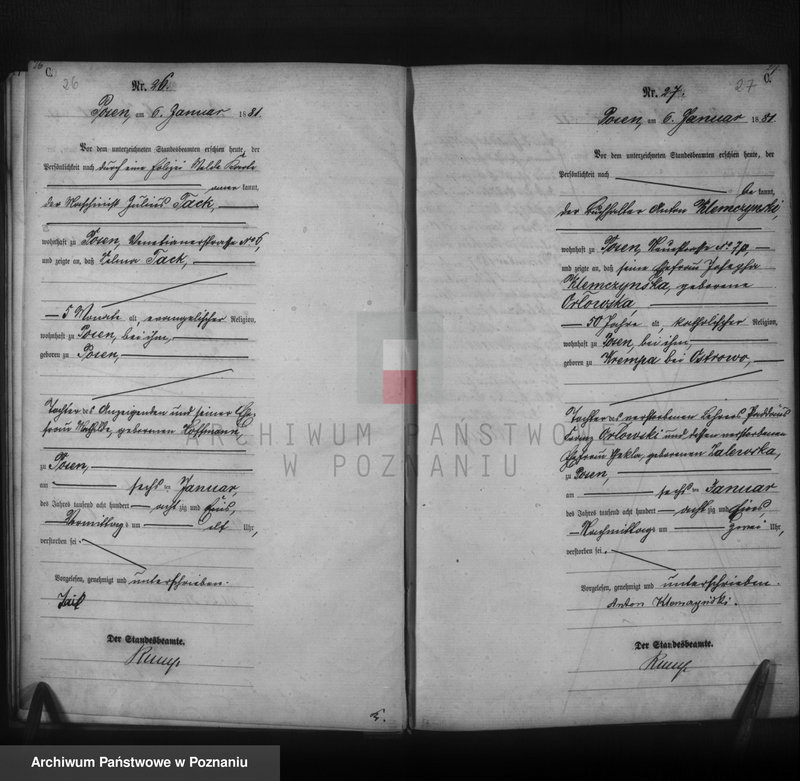 C.
26
Nr. 26.
Posen, am 6. Januar 1881.
Vor dem unterzeichneten Standesbeamten erschien heute, der
Persönlichkeit nach durch eine Polizei
kannt,
der Maschinist Julius Tack,
wohnhaft zu Posen, Venetianerstraße No 6,
und zeigte an, daß Selma Tack,
5 Monate alt, evangelischer Religion,
wohnhaft zu Posen, bei ihm,
geboren zu Posen,
Tochter des Anzeigenden und seiner Ehe-
frau Mathilde, geborenen Hoffmann
zu Posen,
am sechsten Januar,
des Jahres tausend acht hundert achtzig und Eins,
Vormittags um elf Uhr,
verstorben sei.
Vorgelesen, genehmigt und unterschrieben.
Der Standesbeamte.
Rump
C.
27
Nr. 27.
Posen, am 6. Januar 1881.
Vor dem unterzeichneten Standesbeamten erschien heute, der
Persönlichkeit nach
be kannt,
der Buchhalter Anton Klemczynski,
wohnhaft zu Posen, Neuestraße No 7/8,
und zeigte an, daß seine Ehefrau Josepha
Klemczynska, geborene
Orłowska,
50 Jahre alt, katholischer Religion,
wohnhaft zu Posen, bei ihm,
geboren zu Krempa bei Ostrowo,
Tochter des verstorbenen Lehrers
Orłowski und dessen verstorbenen
Ehefrau Thekla, geborenen Zalewska,
zu Posen,
am sechsten Januar
des Jahres tausend acht hundert achtzig und Eins
Nachmittags um zwei Uhr,
verstorben sei.
Vorgelesen, genehmigt und unterschrieben.
Anton Klemczyński.
Der Standesbeamte.
Rump
ARCHIWUM PAŃSTWOWE
W POZNANIU
Archiwum Państwowe w Poznaniu